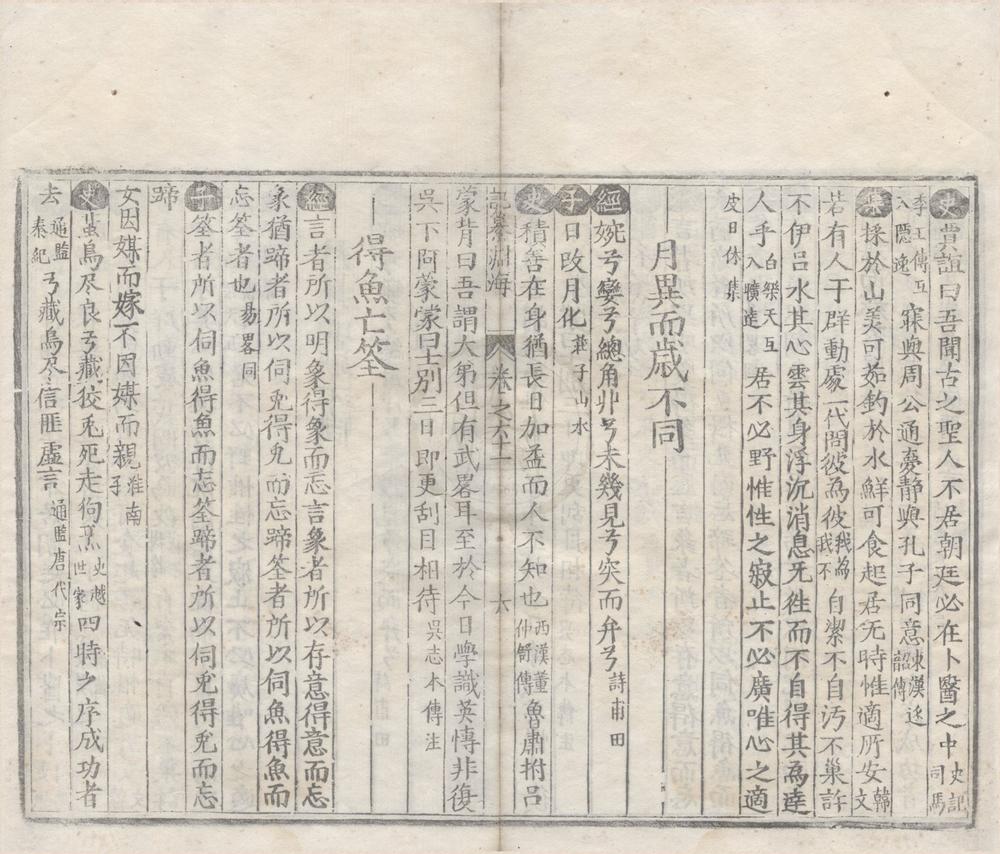 史賈誼曰吾聞古之聖人不居朝廷必在卜醫之中史記司馬
季主傳互入隱逸寐與周公通夣静與孔子同意東漢逐韶傳
集採於山美可茹釣於水鮮可食起居无時惟適所安韓文
若有人于群動處一代問彼為彼我為我不自潔不自汚不巢許
不伊吕水其心雲其身浮沉消息无徃而不自得其為逹
人乎白樂天互入曠逹居不必野惟性之寂止不必廣唯心之適
皮日休集
月異而歲不同
經婉兮孌兮總角丱兮未幾見兮突而弁兮詩甫田
子日改月化莊子山木
史積善在身猶長日加益而人不知也西漢董仲舒傳魯肅拊吕
記纂淵海 卷之六十二 六
蒙背曰吾謂大弟但有武畧耳至於今日學識英愽非復
吳下阿蒙蒙曰士别三日即更刮目相待吳志本傳注
得魚亡筌
經言者所以明象得象而忘言象者所以存意得意而忘
象猶蹄者所以伺兎得兎而忘蹄筌者所以伺魚得魚而
忘筌者也易畧同
子筌者所以伺魚得魚而忘筌蹄者所以伺兎得兎而忘
蹄
女因媒而嫁不因媒而親淮南子
史蜚鳥尽良弓藏狡兎死走狗烹史越世家四時之序成功者
去通鑑秦紀弓藏鳥尽信匪虚言通鑑唐代宗